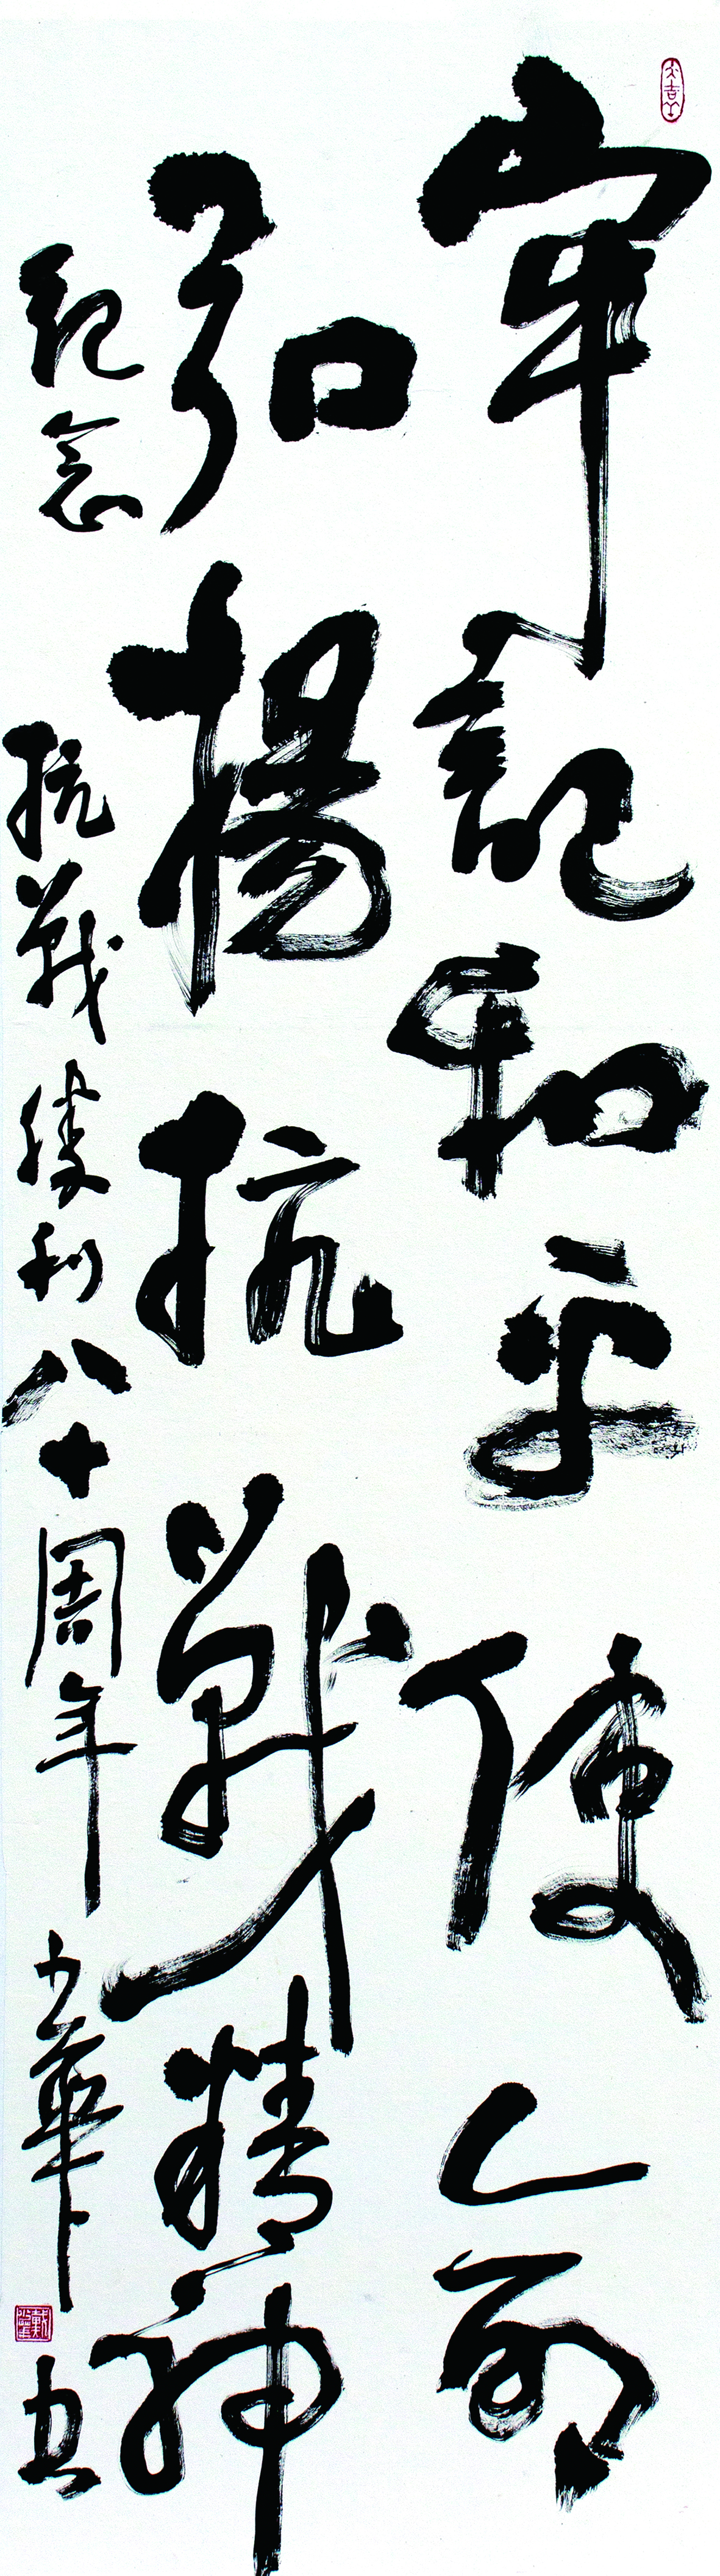 牢記和平使命
弘揚抗戰精神
紀念抗戰勝利八十周年